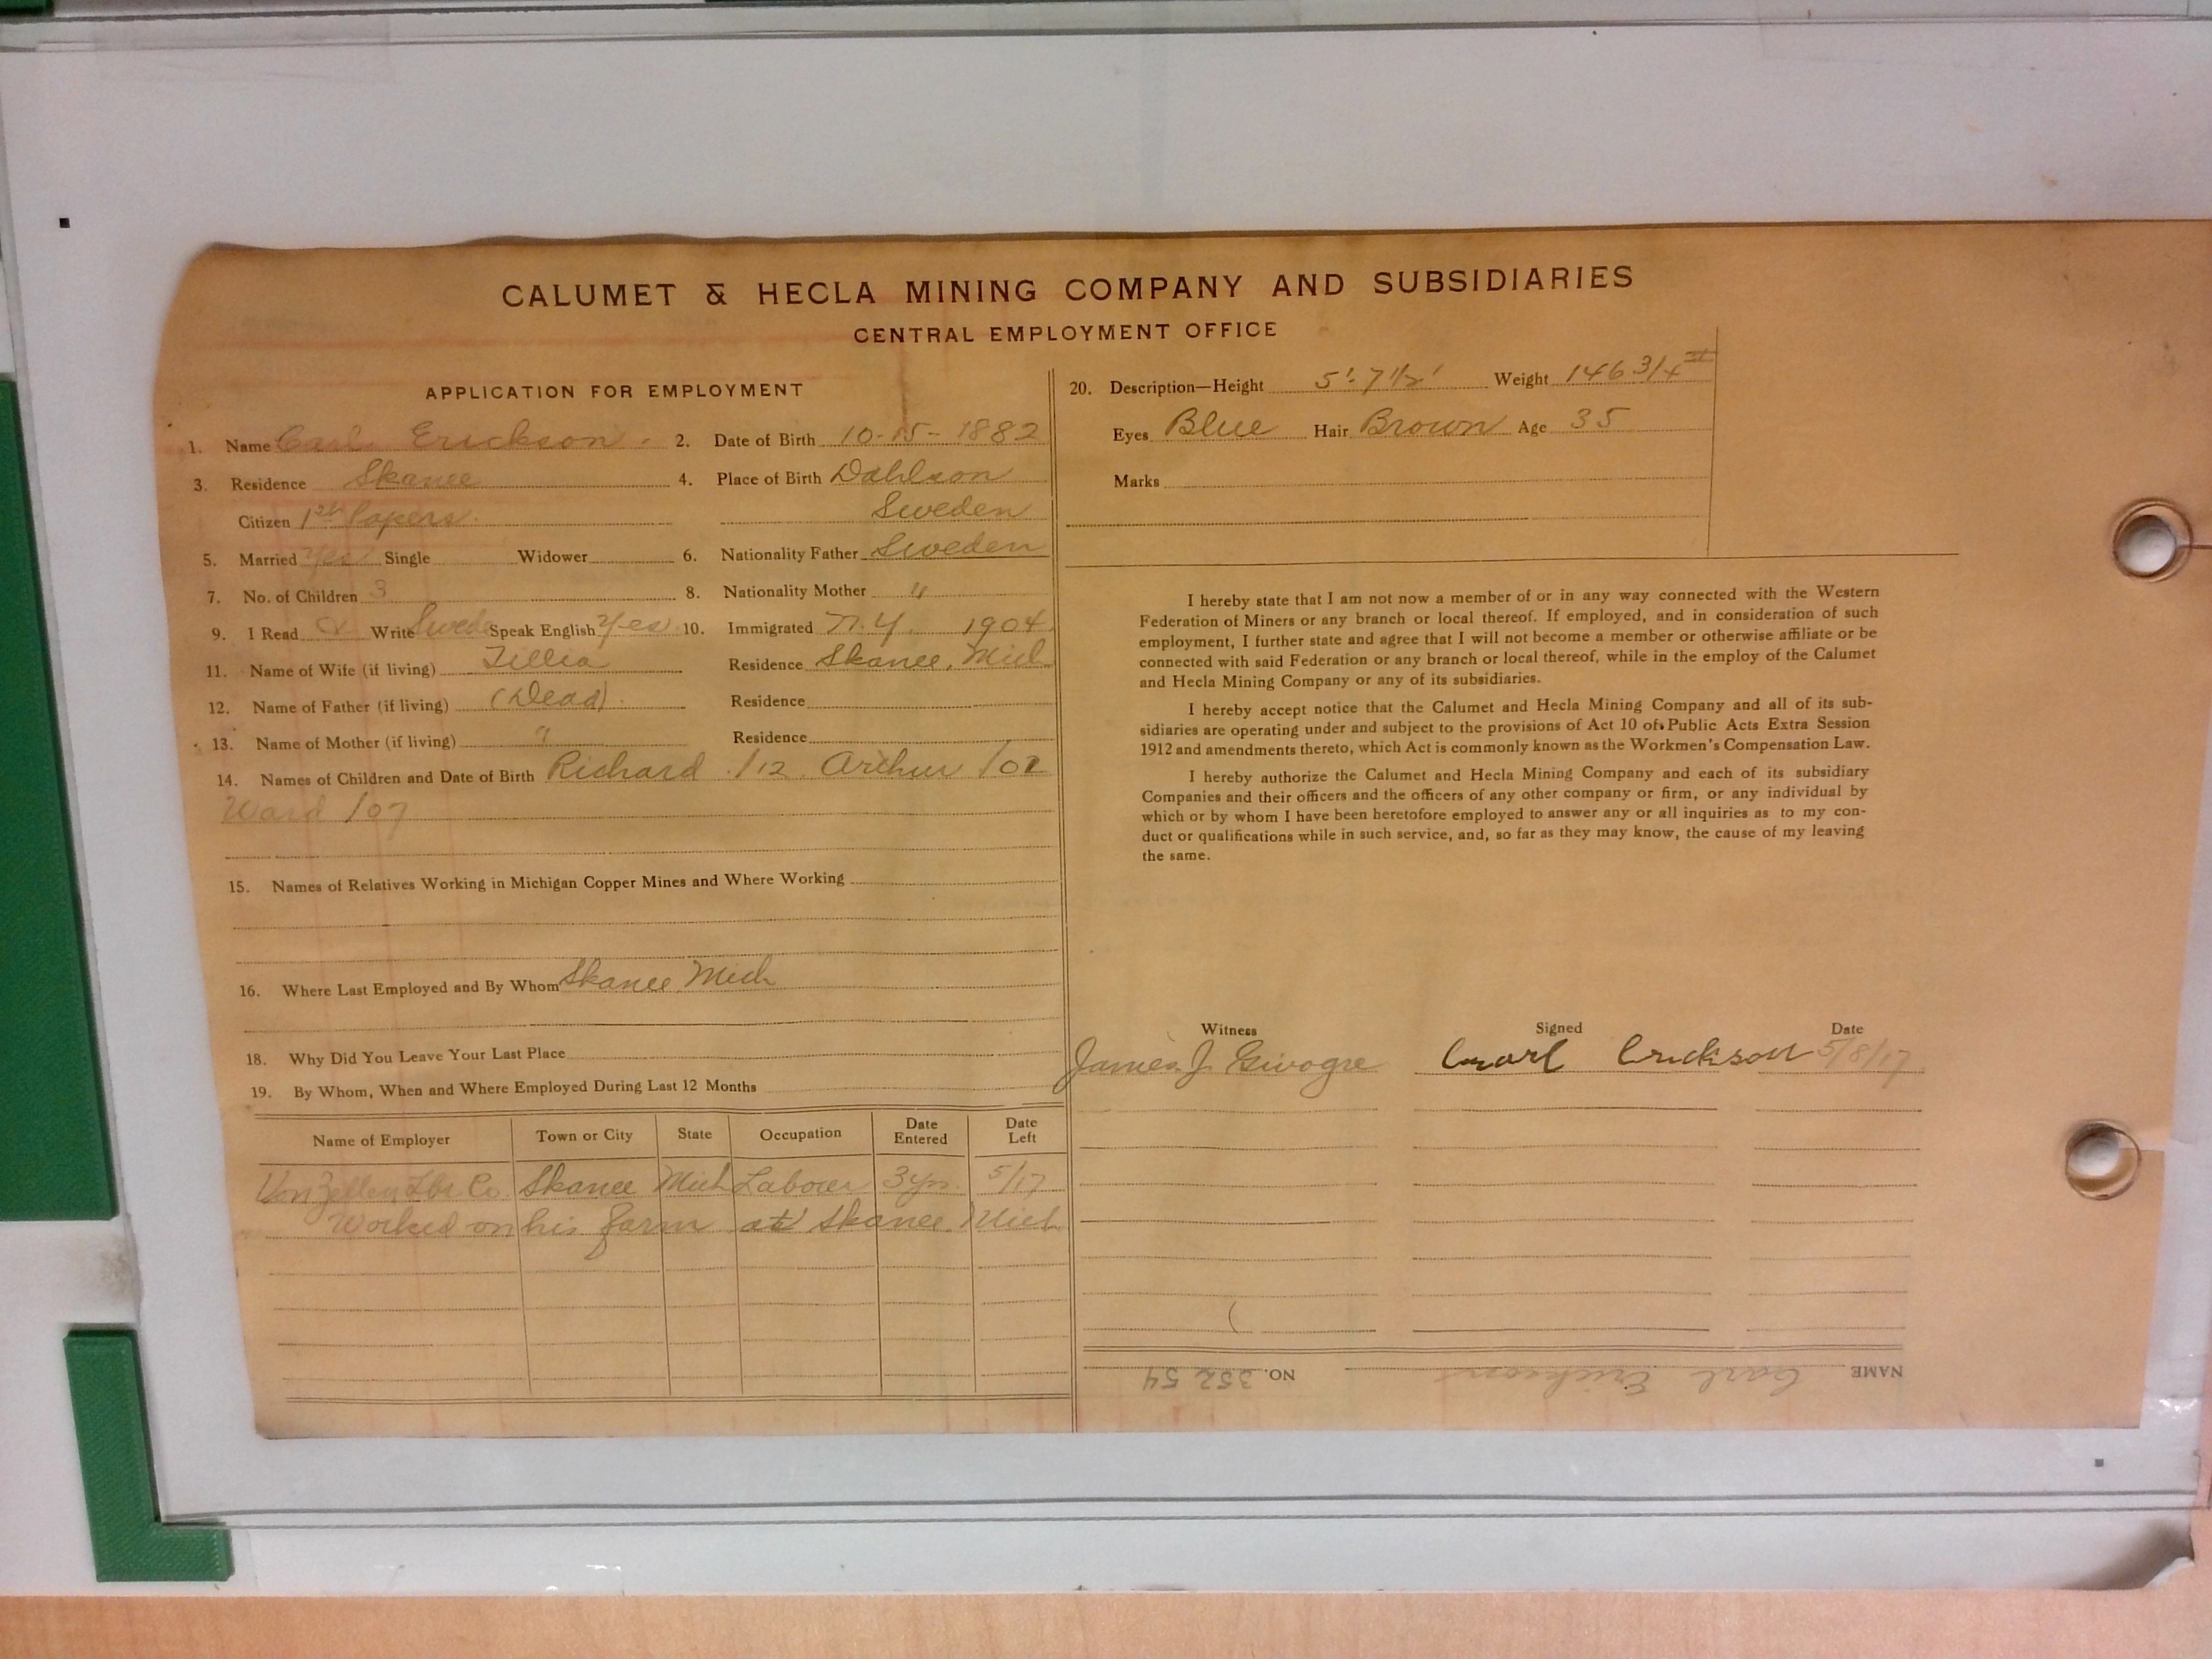 CALUMET & HECLA MINING COMPANY AND SUBSIDIARIES
CENTRAL EMPLOYMENT OFFICE
APPLICATION FOR EMPLOYMENT
1. Name Carl Erickson. 2. Date of Birth 10-15-1882
3. Residence Skanee 4. Place of Birth Dahlson
Citizen 1st Papers. Sweden
5. Married Yes Single Widower 6. Nationality Father Sweden
7. No. of Children 3 8. Nationality Mother "
9. I Read & Write Swede Speak English Yes 10. Immigrated N.Y. 1904
11. Name of Wife (if living) Tillia Residence Skanee, Mich
12. Name of Father (if living) (Dead). Residence
13. Name of Mother (if living) " Residence
14. Names of Children and Date of Birth Richard /12 Arthur /02
Ward /07
15. Names of Relatives Working in Michigan Copper Mines and Where Working
16. Where Last Employed and By Whom Skanee Mich
18. Why Did You Leave Your Last Place
19. By Whom, When and Where Employed During Last 12 Months
Name of Employer Town or City State Occupation Date Entered Date Left
Von Zellen Lbr Co. Skanee Mich Laborer 3 yrs. 5/17
Worked on his farm at Skanee Mich
20. Description—Height 5'-7 1/2' Weight 146 3/4 #
Eyes Blue Hair Brown Age 35
Marks
I hereby state that I am not now a member of or in any way connected with the Western
Federation of Miners or any branch or local thereof. If employed, and in consideration of such
employment, I further state and agree that I will not become a member or otherwise affiliate or be
connected with said Federation or any branch or local thereof, while in the employ of the Calumet
and Hecla Mining Company or any of its subsidiaries.
I hereby accept notice that the Calumet and Hecla Mining Company and all of its sub-
sidiaries are operating under and subject to the provisions of Act 10 of Public Acts Extra Session
1912 and amendments thereto, which Act is commonly known as the Workmen's Compensation Law.
I hereby authorize the Calumet and Hecla Mining Company and each of its subsidiary
Companies and their officers and the officers of any other company or firm, or any individual by
which or by whom I have been heretofore employed to answer any or all inquiries as to my con-
duct or qualifications while in such service, and, so far as they may know, the cause of my leaving
the same.
Witness Signed Date
James J. Givogre Carl Erickson 5/8/17
NAME Carl Erickson NO. 35254